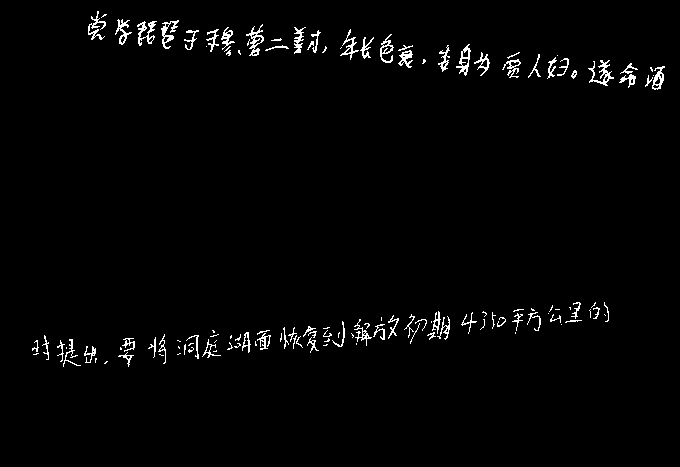 尝学琵琶于穆、曹二善才，年长色衰，委身为贾人妇。遂命酒
时提出，要将洞庭湖面恢复到解放初期4350平方公里的